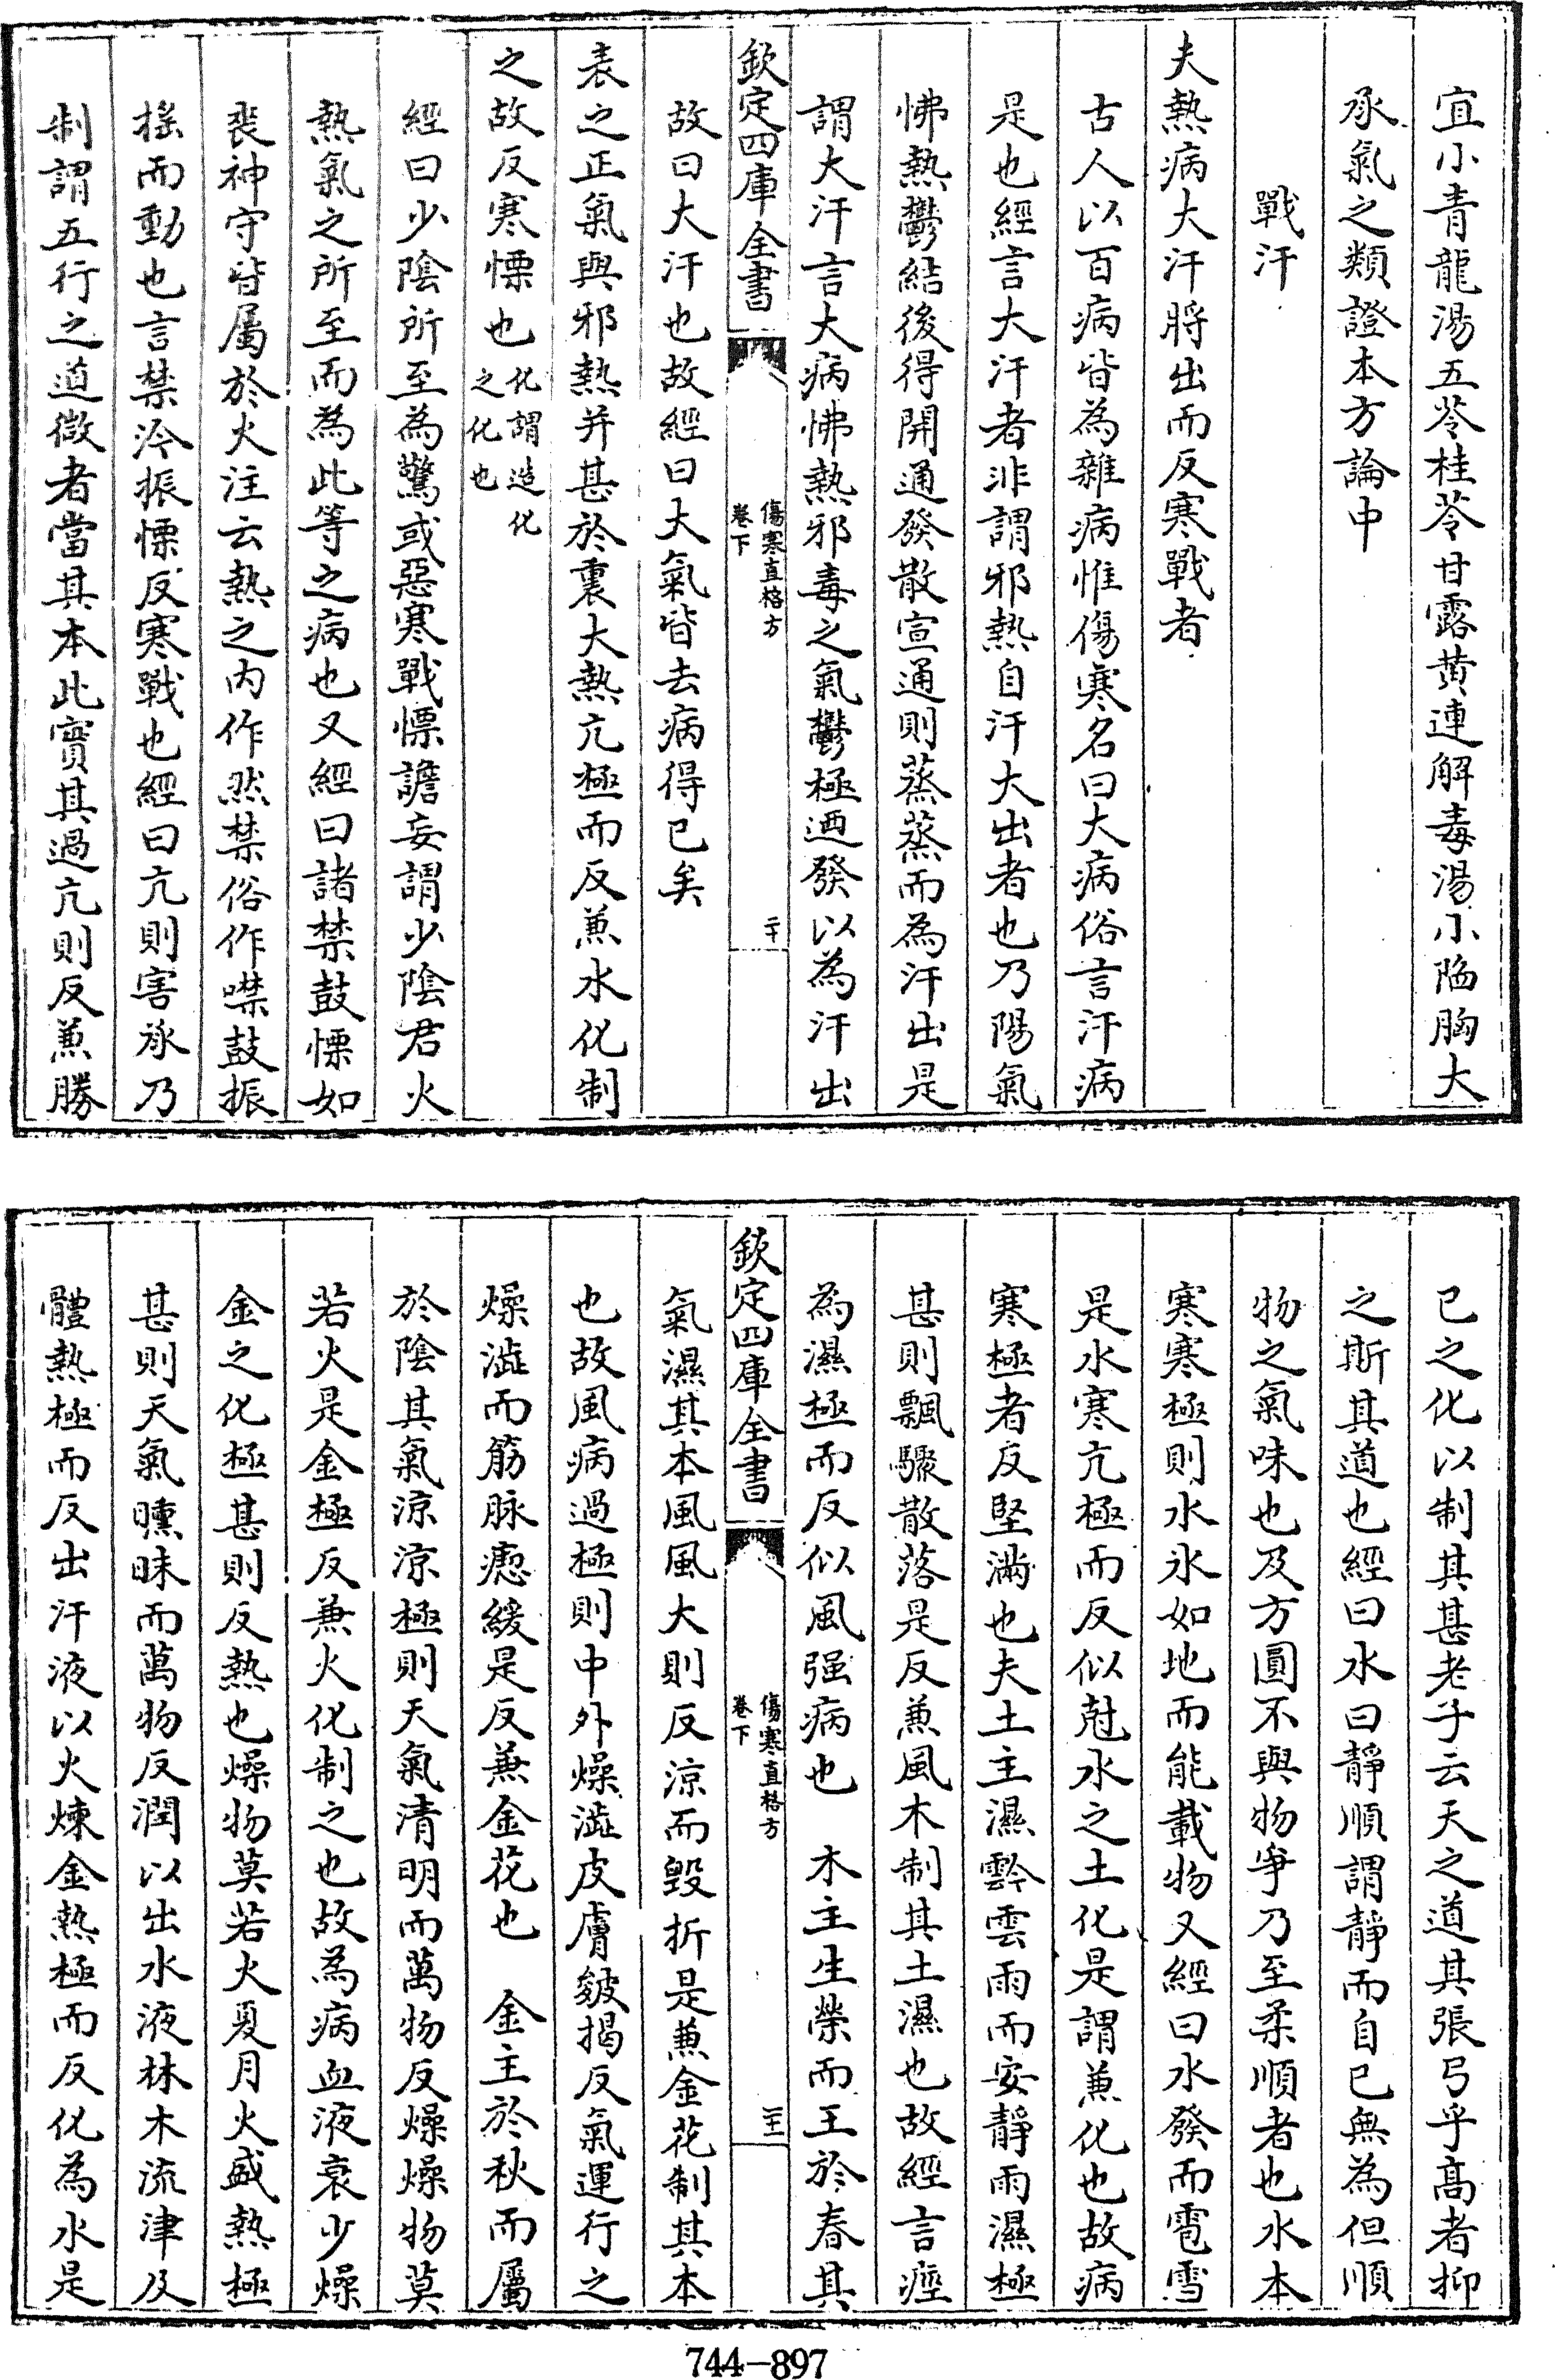 宜小青龍湯五苓桂苓甘露黄連解毒湯小陥胸大
承氣之類證本方論中
戰汗
夫熱病大汗將出而反寒戰者
古人以百病皆為雜病惟傷寒名曰大病俗言汗病
是也經言大汗者非謂邪熱自汗大出者也乃陽氣
怫熱鬱結後得開通發散宣通則蒸蒸而為汗出是
謂大汗言大病怫熱邪毒之氣鬱極迺發以為汗出
欽定四庫全書
傷寒直格方
卷下
二十
故曰大汗也故經曰大氣皆去病得已矣
表之正氣與邪熱并甚於裏大熱亢極而反兼水化制
之故反寒慄也
化謂造化
之化也
經曰少陰所至為驚或惡寒戰慄譫妄謂少陰君火
熱氣之所至而為此等之病也又經曰諸禁鼓慄如
喪神守皆屬於火注云熱之内作然禁俗作噤鼓振
摇而動也言禁冷振慄反寒戰也經曰亢則害承乃
制謂五行之道微者當其本此實其過亢則反兼勝
已之化以制其甚老子云天之道其張弓乎高者抑
之斯其道也經曰水曰靜順謂靜而自已無為但順
物之氣味也及方圓不與物爭乃至柔順者也水本
寒寒極則水氷如地而能載物又經曰水發而雹雪
是水寒亢極而反似尅水之土化是謂兼化也故病
寒極者反堅滿也夫土主濕霒雲雨而安靜雨濕極
甚則飄驟散落是反兼風木制其土濕也故經言痙
為濕極而反似風强病也　木主生榮而王於春其
欽定四庫全書
傷寒直格方
卷下
二十一
氣濕其本風風大則反涼而毁折是兼金花制其本
也故風病過極則中外燥澁皮膚皴揭反氣運行之
燥澁而筋脉瘛緩是反兼金花也　金主於秋而屬
於陰其氣涼涼極則天氣清明而萬物反燥燥物莫
若火是金極反兼火化制之也故為病血液衰少燥
金之化極甚則反熱也燥物莫若火夏月火盛熱極
甚則天氣曛昧而萬物反潤以出水液林木流津及
體熱極而反出汗液以火煉金熱極而反化為水是
744-897